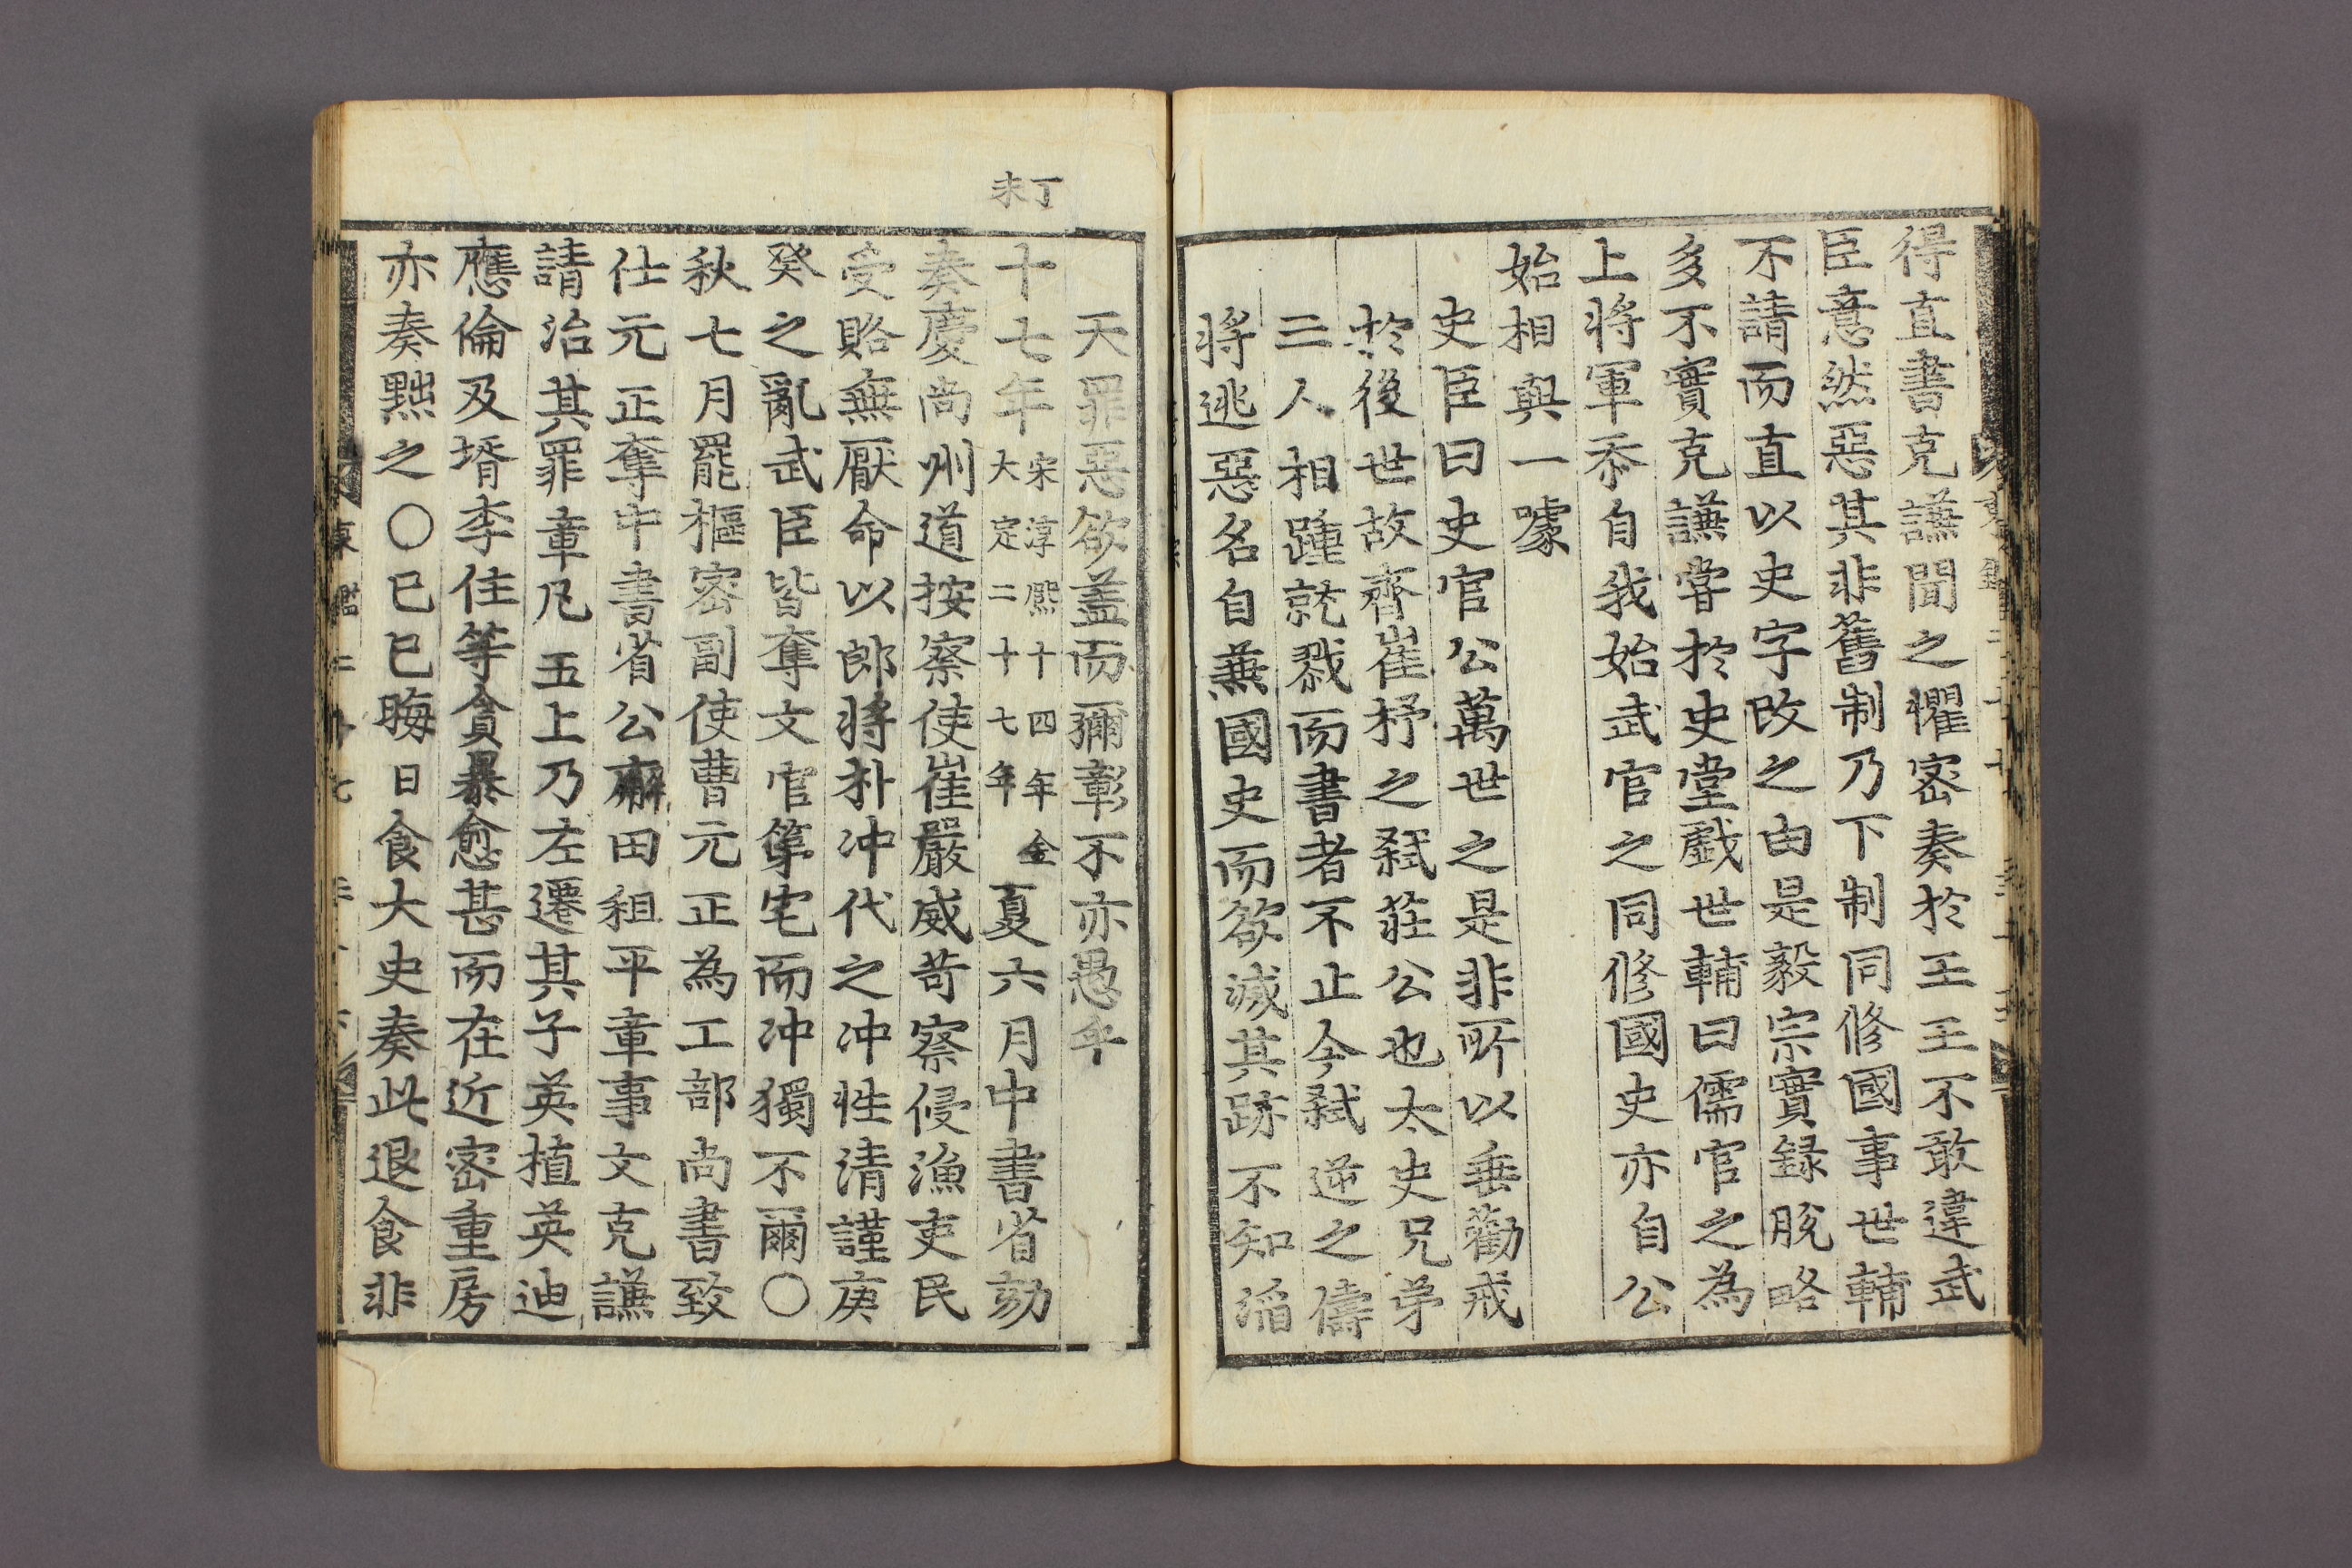 得直書克謙聞之懼密奏於王王不敢違武
臣意然惡其非舊制乃下制同修國事世輔
不請而直以史字改之由是毅宗實録脫略
多不實克謙甞於史堂戱世輔曰儒官之為
上將軍忝自我始武官之同修國史亦自公
始相與一噱
史臣曰史官公萬世之是非所以垂勸戒
於後世故齊崔杼之弑莊公也太史兄弟
三人相踵就戮而書者不止今弑逆之儔
將逃惡名自兼國史而欲滅其跡不知滔
丁未
天罪惡欲盖而彌彰不亦愚乎
十七年宋淳熈十四年金大定二十七年夏六月中書省劾
奏慶尚州道按察使崔嚴威苛察侵漁吏民
受賂無厭命以郎將朴冲代之冲性清謹庚
癸之亂武臣皆奪文官第宅而冲獨不爾○
秋七月罷樞密副使曹元正為工部尚書致
仕元正奪中書省公廨田租平章事文克謙
請治其罪章凡五上乃左遷其子英植英迪
應倫及壻李住等貪暴愈甚而在近密重房
亦奏黜之○巳巳晦日食大史奏此退食非
東鑑二十七